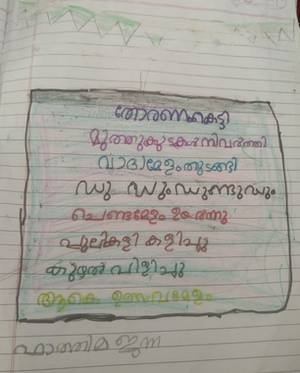 തോരണം കെട്ടി
മുത്തുകുടകൾ നിവർത്തി
വാദ്യമേളം തുടങ്ങി
ഡും ഡും ഡുണ്ടുഡും
ചെണ്ടമേളം ഉയർന്നു
പുലികളി കളിച്ചു
കുഴൽ വിളിച്ചു
ആകെ ഉത്സവമേളം
ഫാത്തിമ ജുന്ന